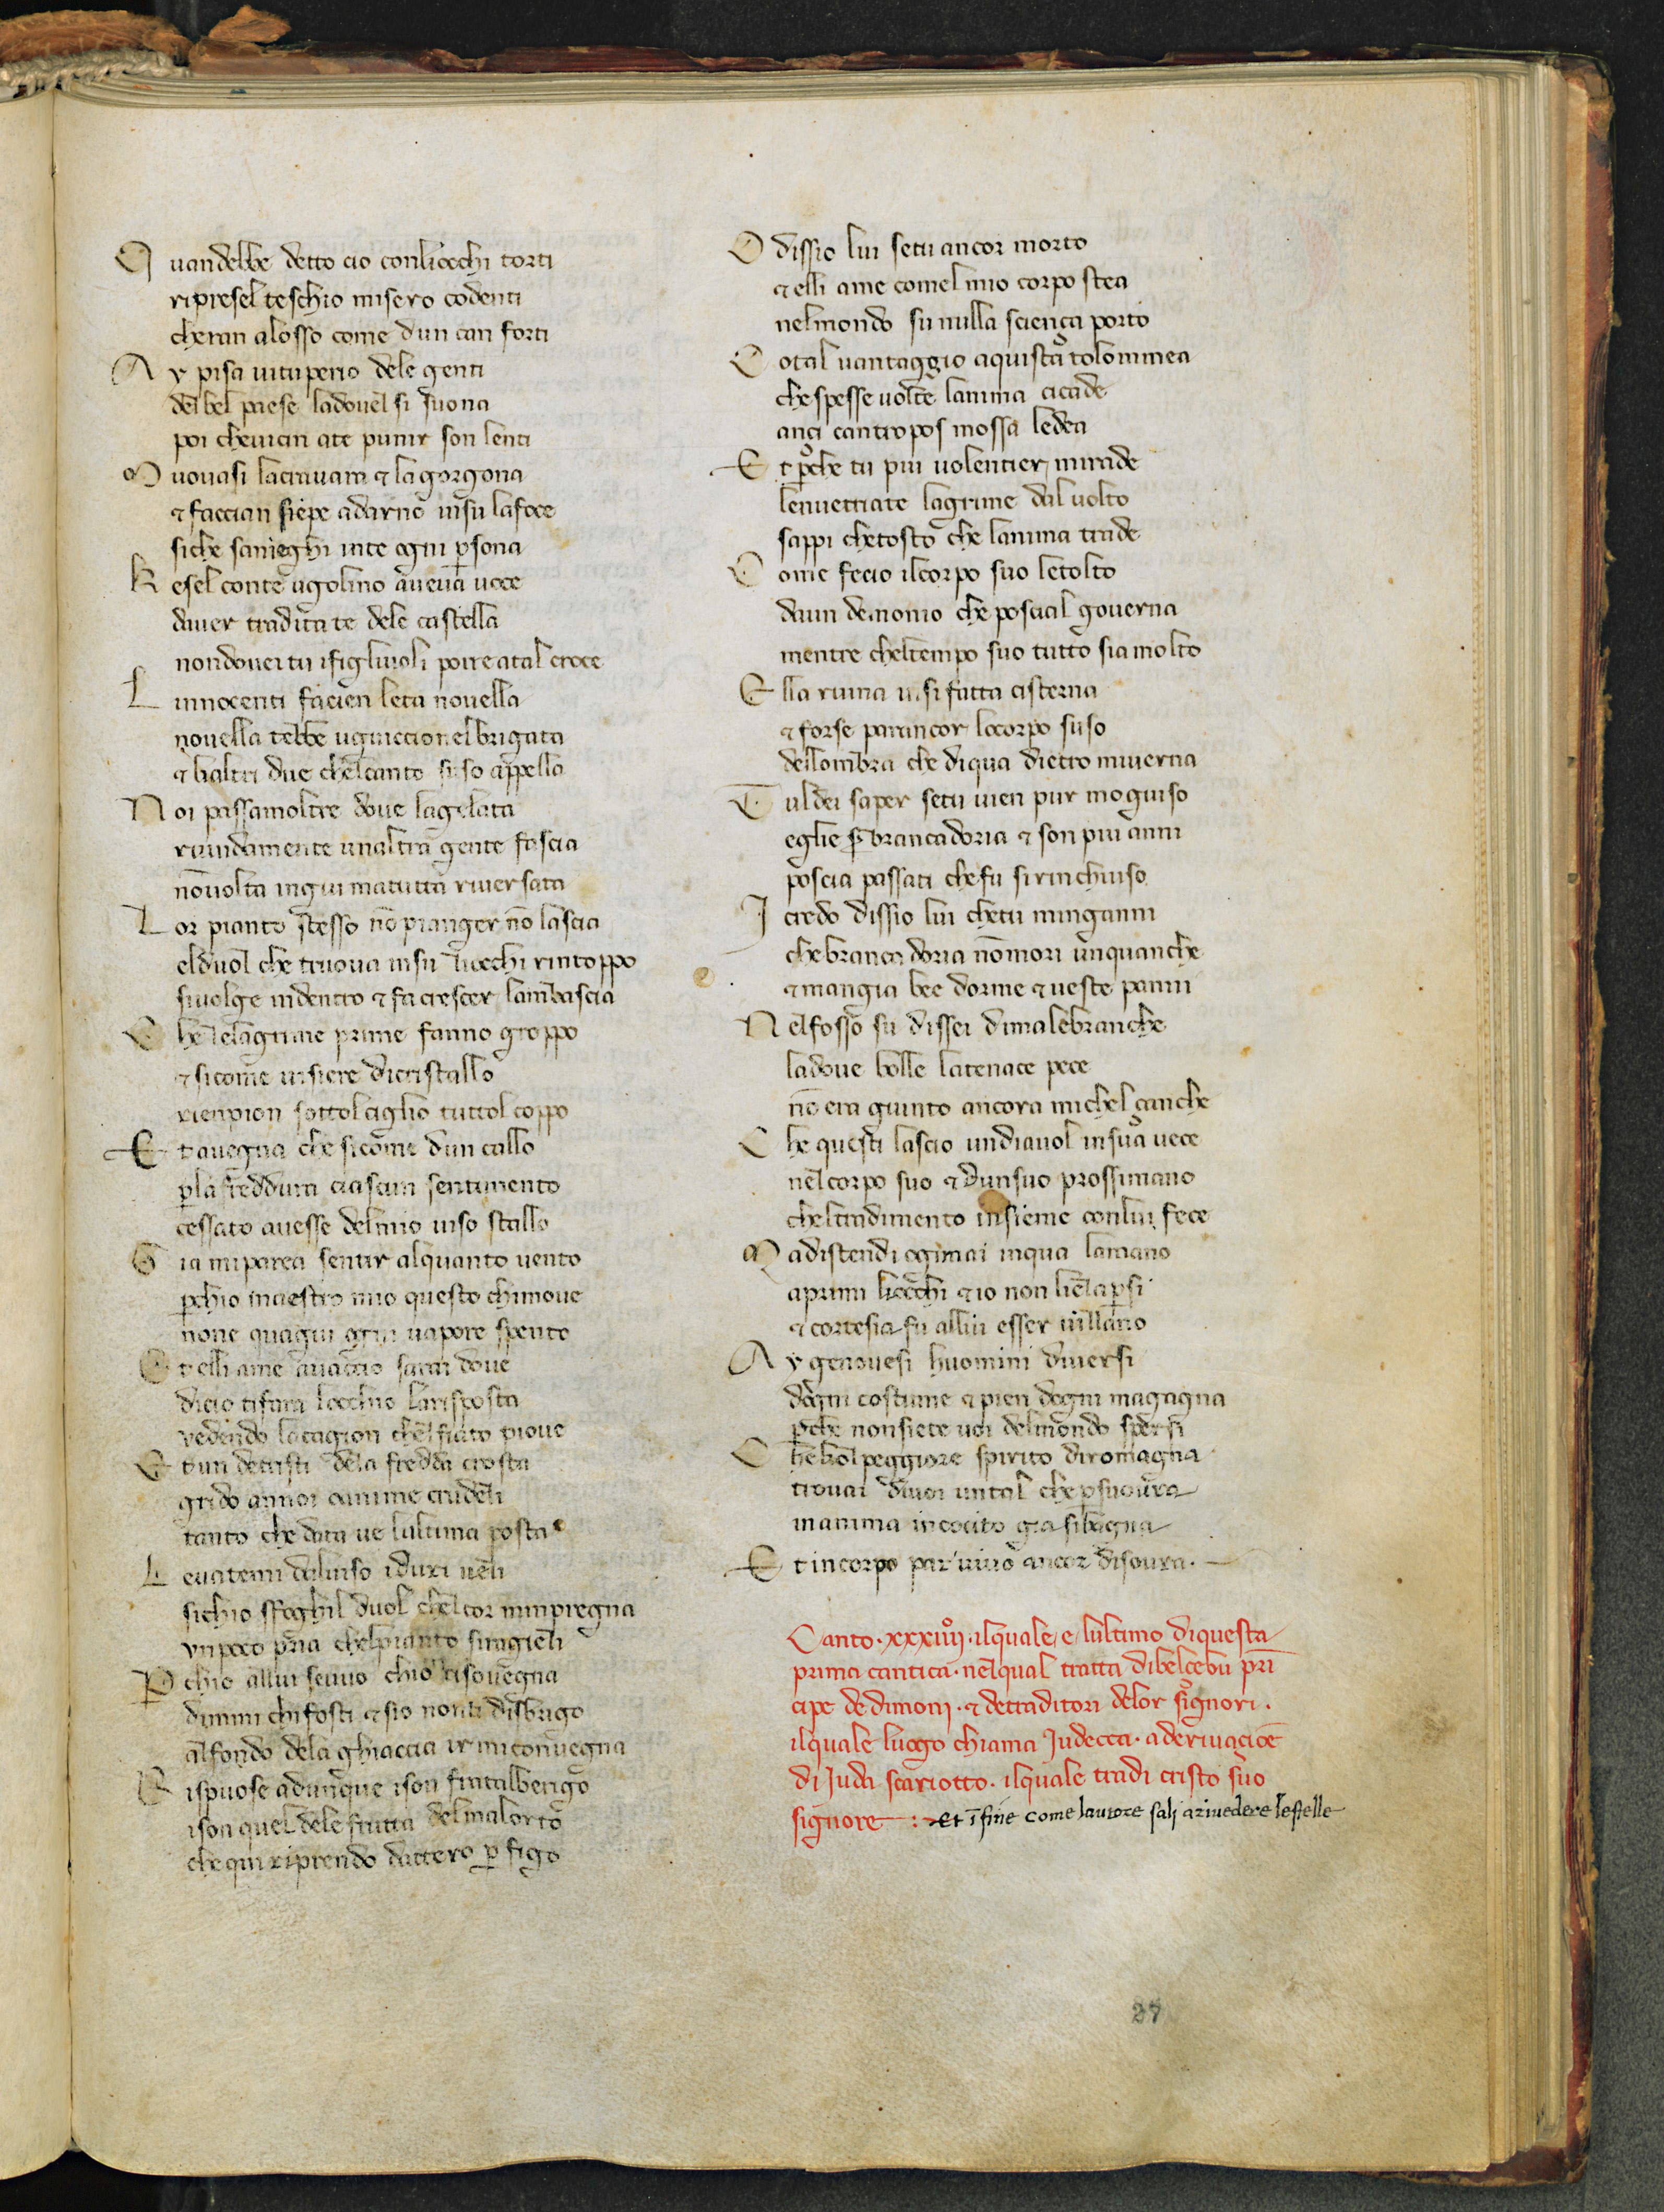 Q uandebbe detto cio conliocchi torti
ripresel teschio misero codenti
cheran alosso come dun can forti
A y pisa uituperio dele genti
del bel paese ladouel si suona
poi cheuicin ate punir son lenti
M uouasi lacrauara ⁊ la gorgona
⁊ faccian siepe adarno insu lafoce
siche sanieghi inte ogni p̲sona
K esel conte ugolino aueua uoce
dauer tradita te dele castella
nondouei tu ifigliuoli porre atal croce
L innocenti facien leta nouella
nouella tebbe uguiccionel brigata
⁊ lialtri due chelcanto suso appella
N oi passamoltre doue lagelata
ruuidamente unaltra gente fascia
nō uolta ingiu matutta riuersata
L or pianto stesso nō pianger nō lascia
elduol che truoua insu liocchi rintoppo
siuolge indentro ⁊ fa crescer lambascia
C he lelagrime prime fanno groppo
⁊ sicome uisiere dicristallo
rienpion sottol ciglio tuttol coppo
E t auegna che sicome dun callo
p̲ la freddura ciascun sentimento
cessato auesse delmio uiso stallo
G ia miparea sentir alquanto uento
p̲chio maestro mio questo chimoue
none quagiu ogni uapore spento
E t elli ame auaccio sarai doue
dicio tifara locchio larisposta
vedendo lacagion chel fiato pioue
E t un detristi dela fredda crosta
grido annoi o anime crudeli
tanto che data ue lultima posta
L euatemi daluiso iduri ueli
sichio sfoghil duol chelcor mimpregna
vnpoco pria chelpianto siragieli
P̲ chio allui seuuo chio tisouegna
dimmi chi fosti ⁊ sio nonti disbrigo
alfondo dela ghiaccia ir miconuegna
R ispuose adunque ison fratalberigo
ison quel dele frutta delmal orto
che qui riprendo dattero p̲ figo
O dissio lui setu ancor morto
⁊ elli ame comel mio corpo stea
nelmondo su nulla sciença porto
C otal uantaggio aquista tolommea
che spesse uolte lanima cicade
ançi cantropos mossa ledea
E t p̲che tu piu uolentier mirade
lenuetriate lagrime dal uolto
sappi chetosto che lanima trade
C ome fecio ilcorpo suo letolto
daun demonio che poscial gouerna
mentre cheltempo suo tutto sia uolto
E lla ruina insi fatta cisterna
⁊ forse parancor locorpo suso
dellombra che diqua dietro miuerna
T uldei saper setu uien pur mo giuso
eglie s̲ brancadoria ⁊ son piu anni
poscia passati chefu si rinchiuso
I credo dissio lui chetu minganni
chebranca doria nō mori unquanche
⁊ mangia bee dorme ⁊ ueste panni
N elfosso su dissei dimalebranche
ladoue bolle latenace pece
nō era giunto ancora michel çanche
C he questi lascio undiauol insua uece
nelcorpo suo ⁊ dunsuo prossimano
cheltradimento insieme conlui fece
M adistendi ogimai inqua lamano
aprimi liocchi ⁊ io non liel ap̲si
⁊ cortesia fu allui esser uillano
A y genouesi huomini diuersi
dogni costume ⁊ pien dogni magagna
p̲che nonsiete uoi delmondo spersi
C he kol peggiore spirito diromagna
trouai diuoi untal che p̲ suoura
inanima in cocito gia sibagna
E t incorpo par uiuo ancor disoura.
Canto · xxxiiijº · ilquale / e / lultimo diquesta
prima cantica · nelqual tratta dibelcebu prī
cipe dedimonj · ⁊ detraditori delor signori .
ilquale luogo chiama Judecca · aderiuacioē
di Juda scariotto · ilquale tradi cristo suo
signore : Et ī fine come lautore sali ariuedere lestelle
27